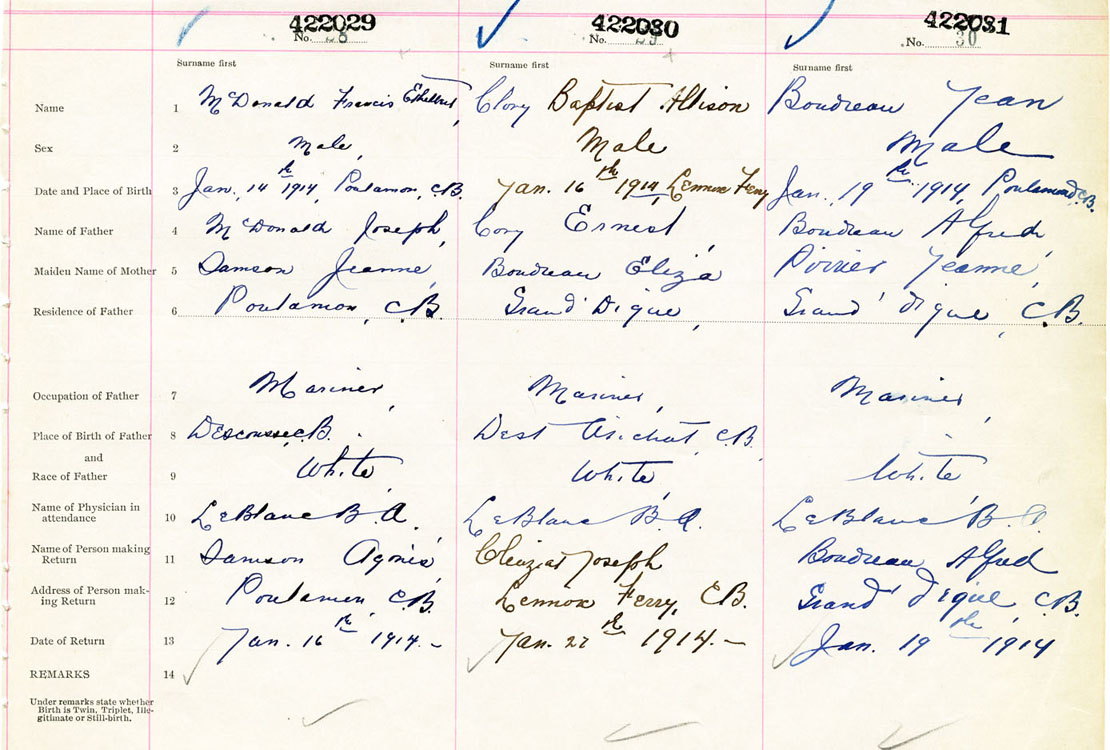 422029 422030 422031
No. 28 No. 29 No. 30
Surname first Surname first Surname first
Name 1 McDonald Francis Ethelbert, Cory Baptist Allison Boudreau Jean
Sex 2 Male, Male Male
Date and Place of Birth 3 Jan. 14th 1914, Poulamon, C.B. Jan. 16th 1914, Lennox Ferry Jan. 19th 1914, Poulamond, C.B.
Name of Father 4 McDonald Joseph, Cory Ernest, Boudreau Alfred,
Maiden Name of Mother 5 Samson Jeanne, Boudreau Eliza, Poirier Jeanne,
Residence of Father 6 Poulamon, C.B. Grand Digue, Grand digue, C.B.
Occupation of Father 7 Mariner, Mariner, Mariner,
Place of Birth of Father 8 Descousse C.B. Dest Arichat, C.B.
and
Race of Father 9 White, White, White,
Name of Physician in
attendance 10 LeBlanc B.A. LeBlanc B.A. LeBlanc B.A
Name of Person making
Return 11 Samson Agnes, Joseph Boudreau Alfred
Address of Person mak-
ing Return 12 Poulamon, C.B. Lennox Ferry, C.B. Grand digue, C.B.
Date of Return 13 Jan. 16th 1914.- Jan. 22th 1914.- Jan. 19th 1914
REMARKS 14
Under remarks state whether
Birth is Twin, Triplet, Ille-
gitimate or Still-birth.